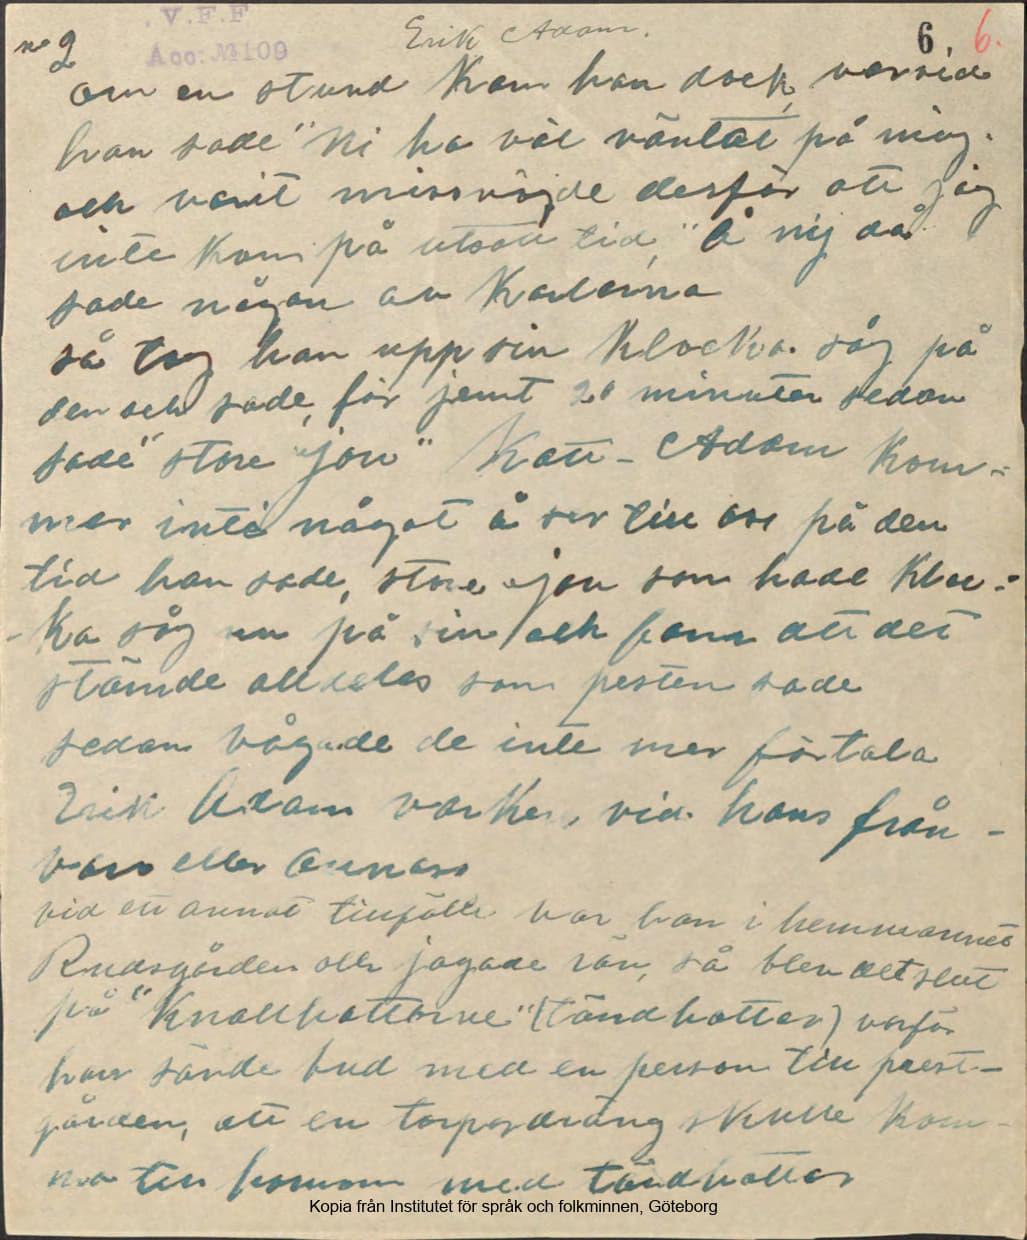 V.F.F
Acc: № 109
Erik Adam.
6. 6.
no 2
om en stund kom han dock, varvid
han sade "Ni ha väl väntat på mig.
och varit missnöjde desför att jag
inte kom på utsatt tid," "Å nij då
sade någon av Karlarna
så tog han upp sin klocka. såg på
den och sade, för jemt 20 minuter sedan
sade "store jon" Katt-Adam kom-
mer inte något å ser till oss på den
tid han sade, store jon som hade kloc-
ka såg nu på sin och fann att det
stämde alldeles som presten sade
sedan vågade de inte mer förtala
Erik Adam varken, vid hans från-
varo eller annars
vid ett annat tillfälle var han i hemmannet
Rudsgården och jagade räv, så blev det slut
på "Knallhattarne" (tändhattar) varför
han sände bud med en person till prest-
gården, att en torpardräng skulle kom-
ma till honom med tändhattar
Kopia från Institutet för språk och folkminnen, Göteborg